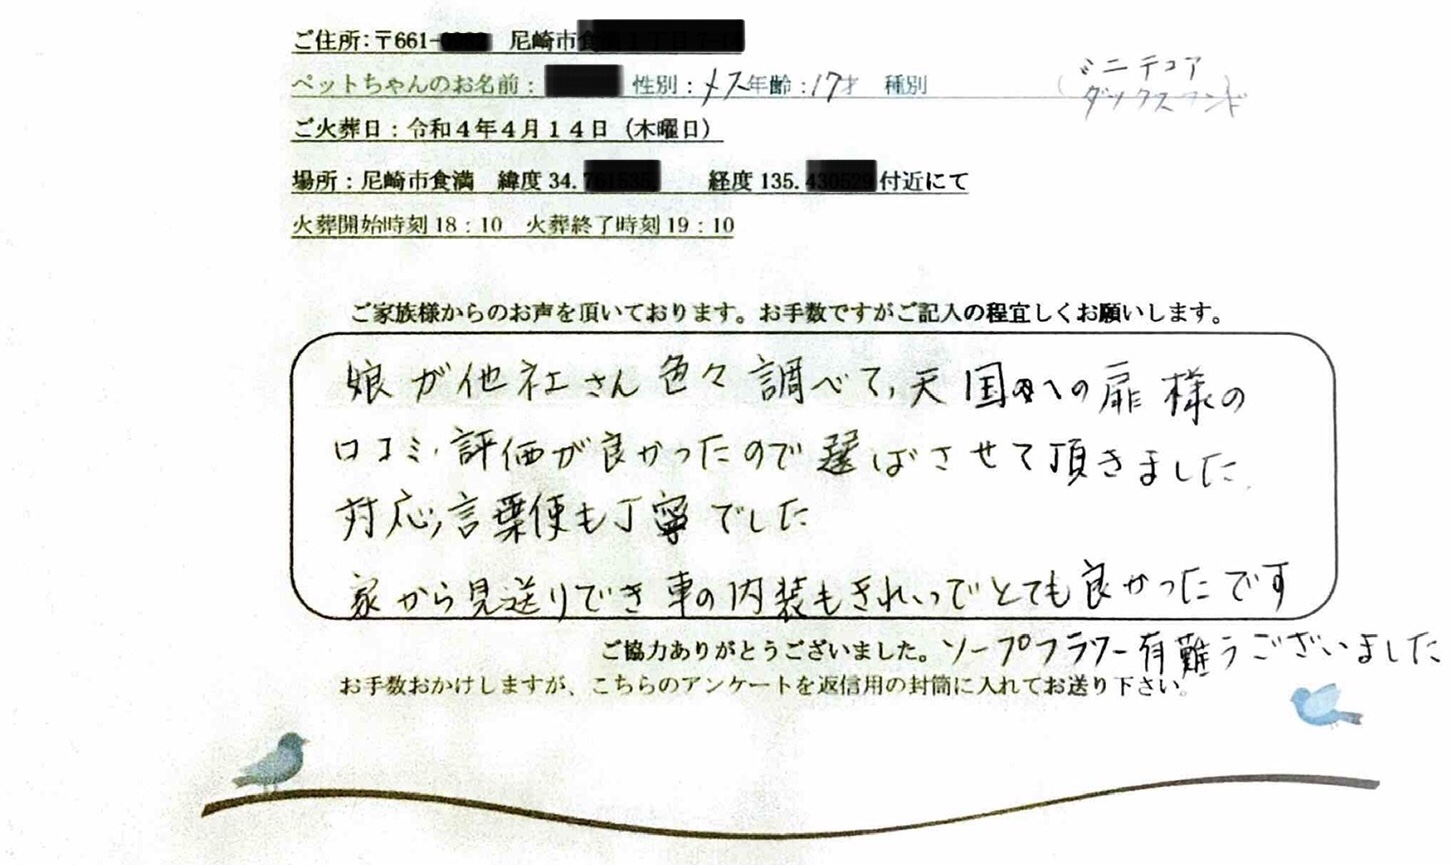 ご住所:〒661- 尼崎市
ペットちゃんのお名前： 性別：メス年齢：17才 種別 (ミニチュア
ダックスフンド
ご火葬日：令和４年４月１４日（木曜日）
場所：尼崎市食満 緯度34. 経度135. 付近にて
火葬開始時刻18：10 火葬終了時刻19：10
ご家族様からのお声を頂いております。お手数ですがご記入の程宜しくお願いします。
娘が他社さん色々調べて、天国への扉様の
口コミ・評価が良かったので選ばさせて頂きました。
対応、言葉使も丁寧でした
家から見送りでき車の内装もきれいでとても良かったです
ご協力ありがとうございました。ソープフラワー有難うございました
お手数おかけしますが、こちらのアンケートを返信用の封筒に入れてお送り下さい。